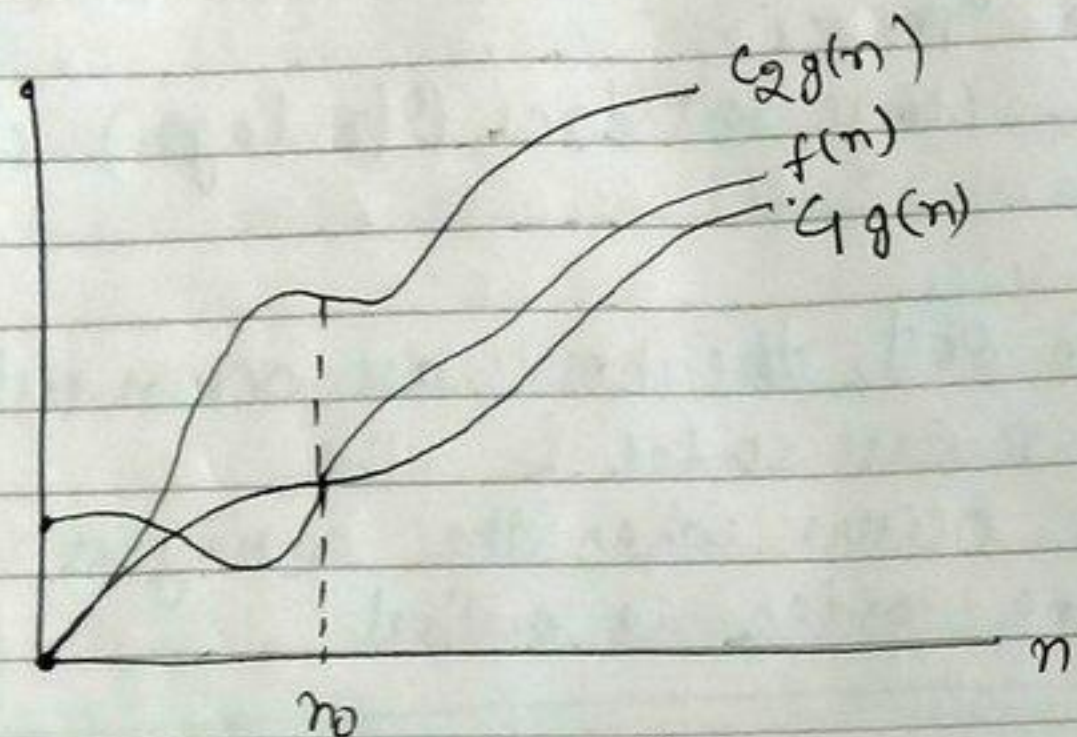 C2g(n)
f(n)
C1g(n)
n
n0